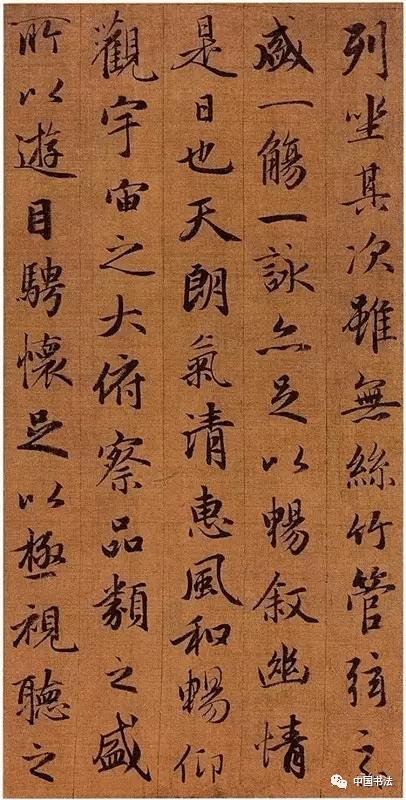 列坐其次雖無絲竹管弦之
盛一觴一詠亦足以暢叙幽情
是日也天朗氣清惠風和暢仰
觀宇宙之大俯察品類之盛
所以遊目騁懷足以極視聽之
中国书法